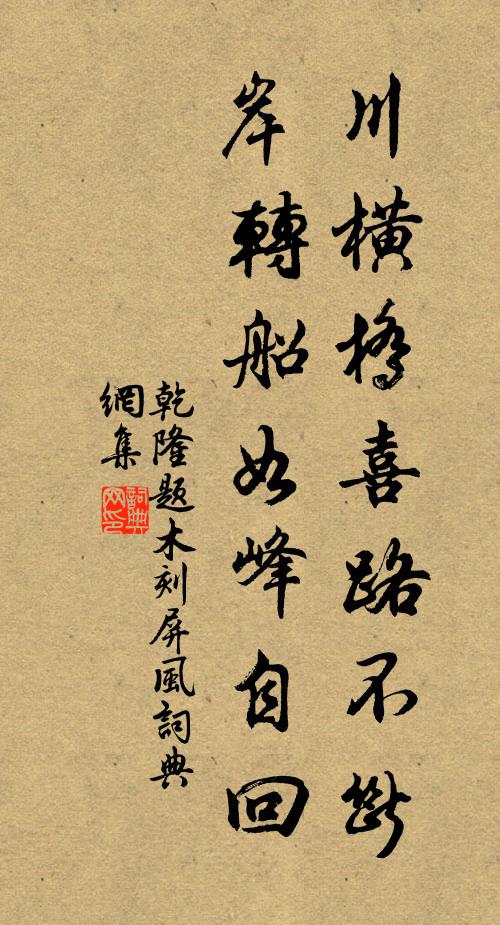 川橫橋喜路不斷
岸轉船如峰自回
乾隆題木刻屏風詞典
網集
詞典
网印